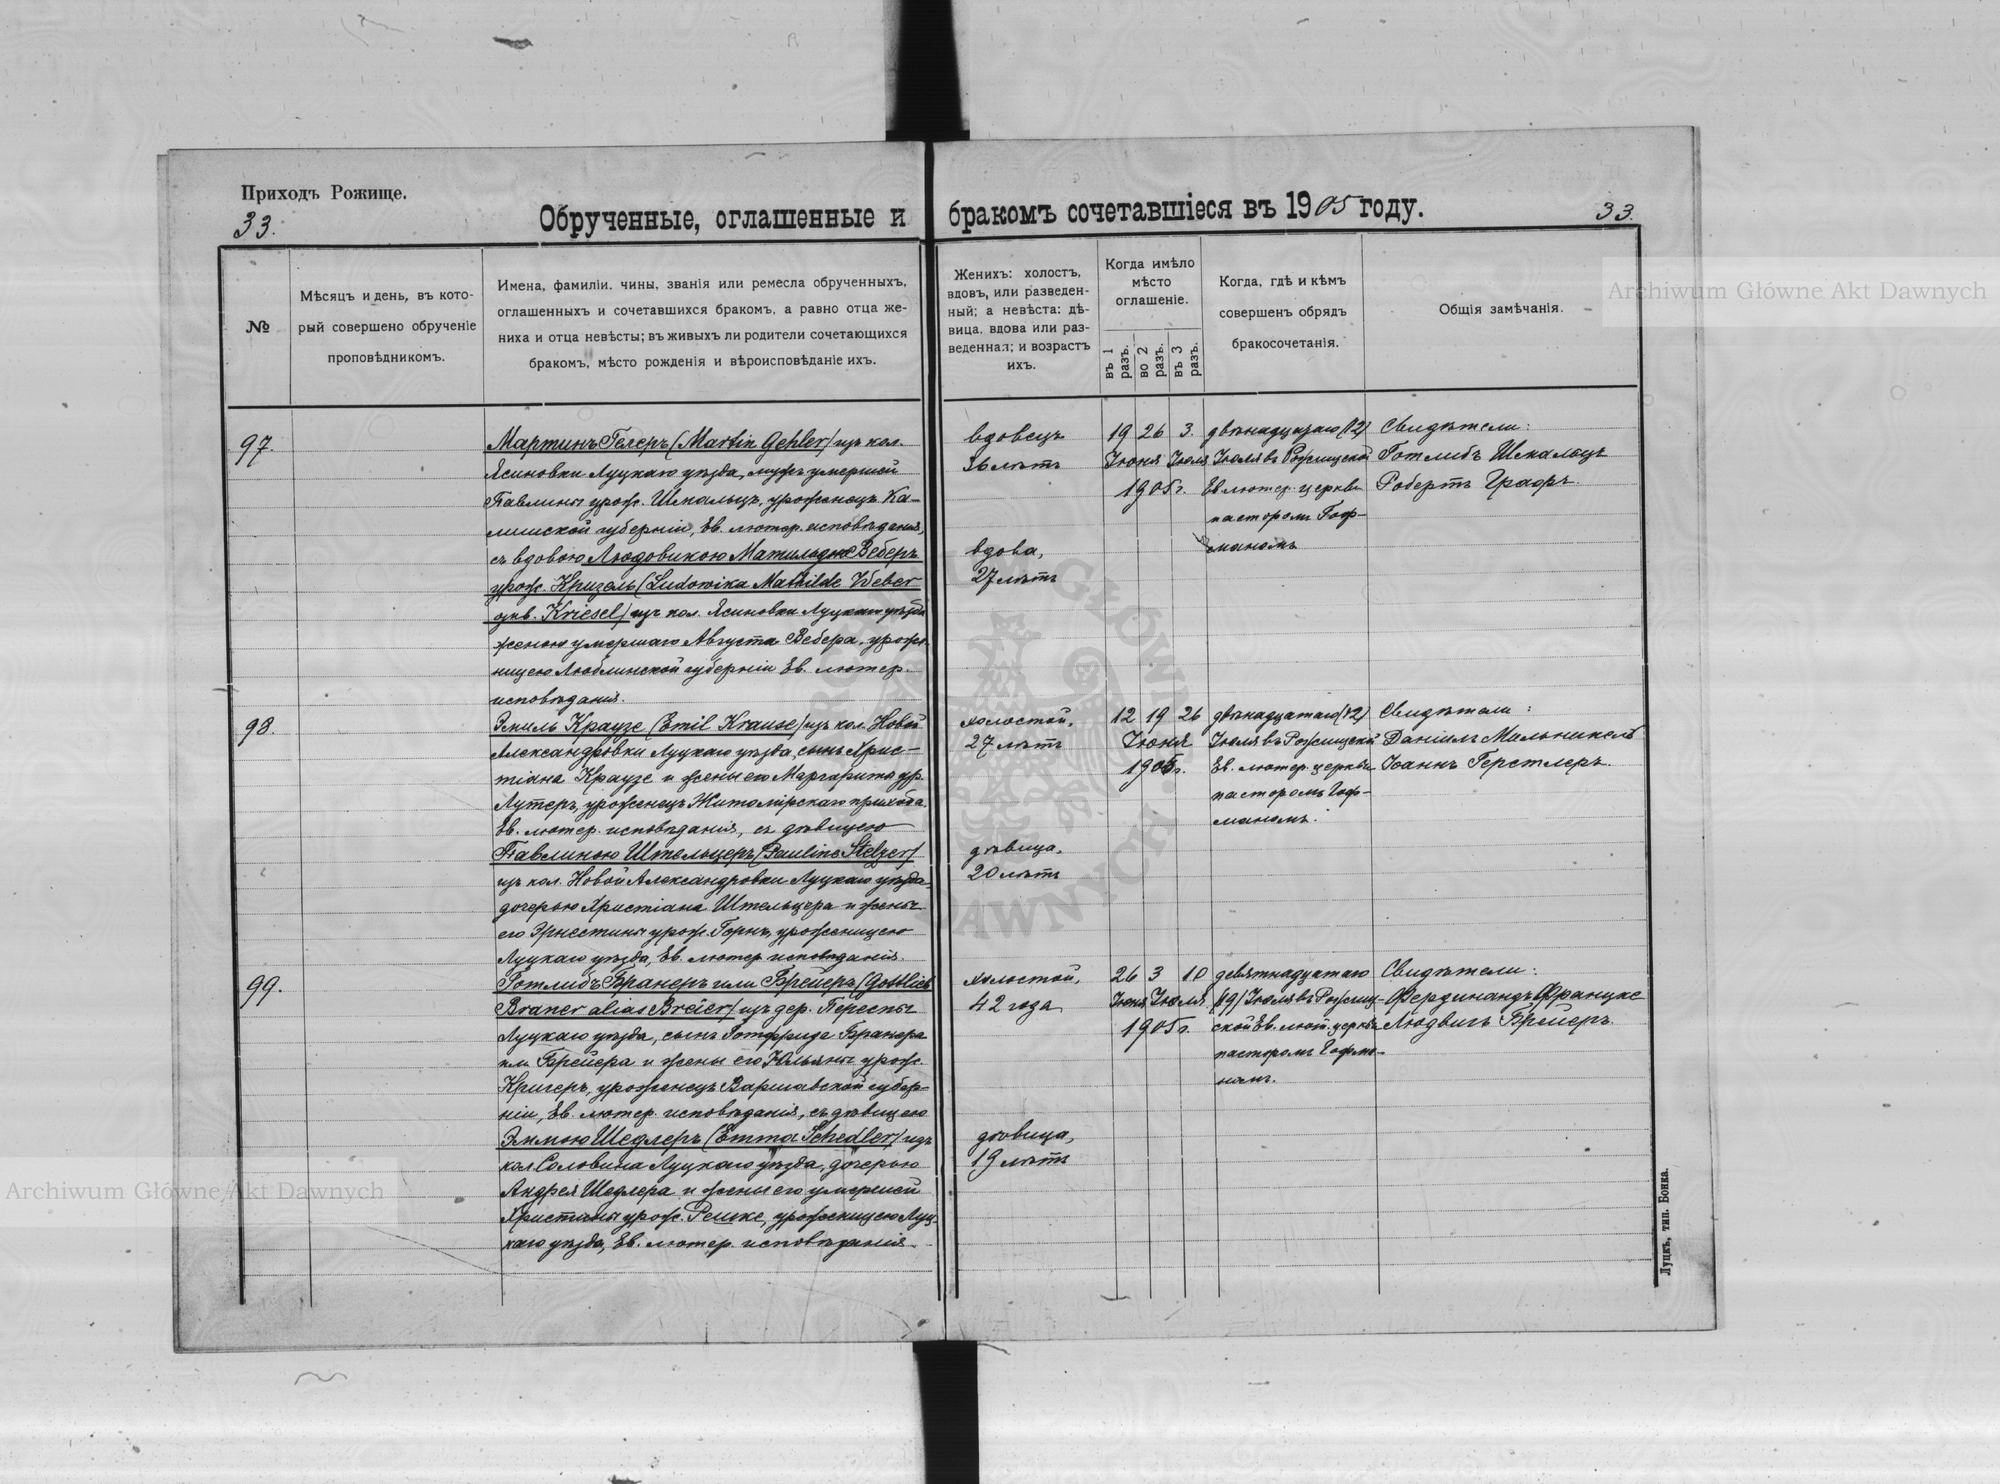 Приходъ Рожище.
33.
Обрученные, оглашенные и
бракомъ сочетавшіеся въ 1905 году.
33.
№
Мѣсяцъ и день, въ кото-
рый совершено обрученіе
проповѣдникомъ.
Имена, фамиліи, чины, званія или ремесла обрученныхъ,
оглашенныхъ и сочетавшихся бракомъ, а равно отца же-
ниха и отца невѣсты; въ живыхъ ли родители сочетающихся
бракомъ, мѣсто рожденія и вѣроисповѣданіе ихъ.
Женихъ: холостъ,
вдовъ, или разведен-
ный; а невѣста: дѣ-
вица, вдова или раз-
веденная; и возрастъ
ихъ.
Когда имѣло
мѣсто
оглашеніе.
въ 1 разъ.
во 2 разъ.
въ 3 разъ.
Когда, гдѣ и кѣмъ
совершенъ обрядъ
бракосочетанія.
Общія замѣчанія.
97.
Мартинъ Гелеръ (Martin Gehler) изъ кол.
Ясиновки Луцкаго уѣзда, мужъ умершей
Павлины урож. Шмальцъ, уроженецъ Ка-
лишской губерніи, Ев. лютер. исповѣданія,
съ вдовою Людовикою Матильдою Веберъ
урож. Кризель (Ludowika Mathilde Weber
geb. Kriesel) изъ кол. Ясиновки Луцкаго уѣзда
женою умершаго Августа Вебера, уроже-
ницею Люблинской губерніи Ев. лютер.
исповѣданія.
вдовецъ
36 лѣтъ
вдова,
27 лѣтъ
19 26 3.
Іюня Іюля
1905 г.
двѣнадцатаго (12)
Іюля въ Рожищской
Ев. лютер. церкви
пасторомъ Гоф-
маномъ
Свидѣтели:
Готлибъ Шмальцъ
Робертъ Графъ.
98.
Эмиль Краузе (Emil Krause) изъ кол. Новой
Александровки Луцкаго уѣзда, сынъ Хрис-
тіана Краузе и жены его Маргарита ур.
Лутеръ, уроженецъ Житомірскаго прихода,
Ев. лютер. исповѣданія, съ дѣвицею
Павлиною Штельцеръ (Pauline Stelzer)
изъ кол. Новой Александровки Луцкаго уѣзда,
дочерью Христіана Штельцера и жены
его Эрнестины урож. Горнъ, уроженицею
Луцкаго уѣзда, Ев. лютер. исповѣданія.
холостой,
27 лѣтъ
дѣвица,
20 лѣтъ
12 19 26
Іюня
1905 г.
двѣнадцатаго (12)
Іюля въ Рожищской
Ев. лютер. церкви
пасторомъ Гоф-
маномъ.
Свидѣтели:
Даніилъ Мельникель
Іоаннъ Герстлеръ.
99.
Готлибъ Бранеръ или Брейеръ (Gottlieb
Braner alias Breier) изъ дер. Переспы
Луцкаго уѣзда, сынъ Готфрида Бранера
или Брейера и жены его Юльяны урож.
Кригеръ, уроженецъ Варшавской губер-
ніи, Ев. лютер. исповѣданія, съ дѣвицею
Эммою Шедлеръ (Emma Schedler) изъ
кол. Соловина Луцкаго уѣзда, дочерью
Андрея Шедлера и жены его умершей
Христины урож. Решке, уроженицею Луц-
каго уѣзда, Ев. лютер. исповѣданія.
холостой,
42 года
дѣвица,
19 лѣтъ
26 3 10
Іюня Іюля.
1905 г.
девятнадцатаго
(19) Іюля въ Рожищ-
ской Ев. лют. церкви
пасторомъ Гофма-
номъ.
Свидѣтели:
Фердинандъ Францке
Людвигъ Брейеръ.
Луцкъ, тип. Бонка.
Archiwum Główne Akt Dawnych
Archiwum Główne Akt Dawnych